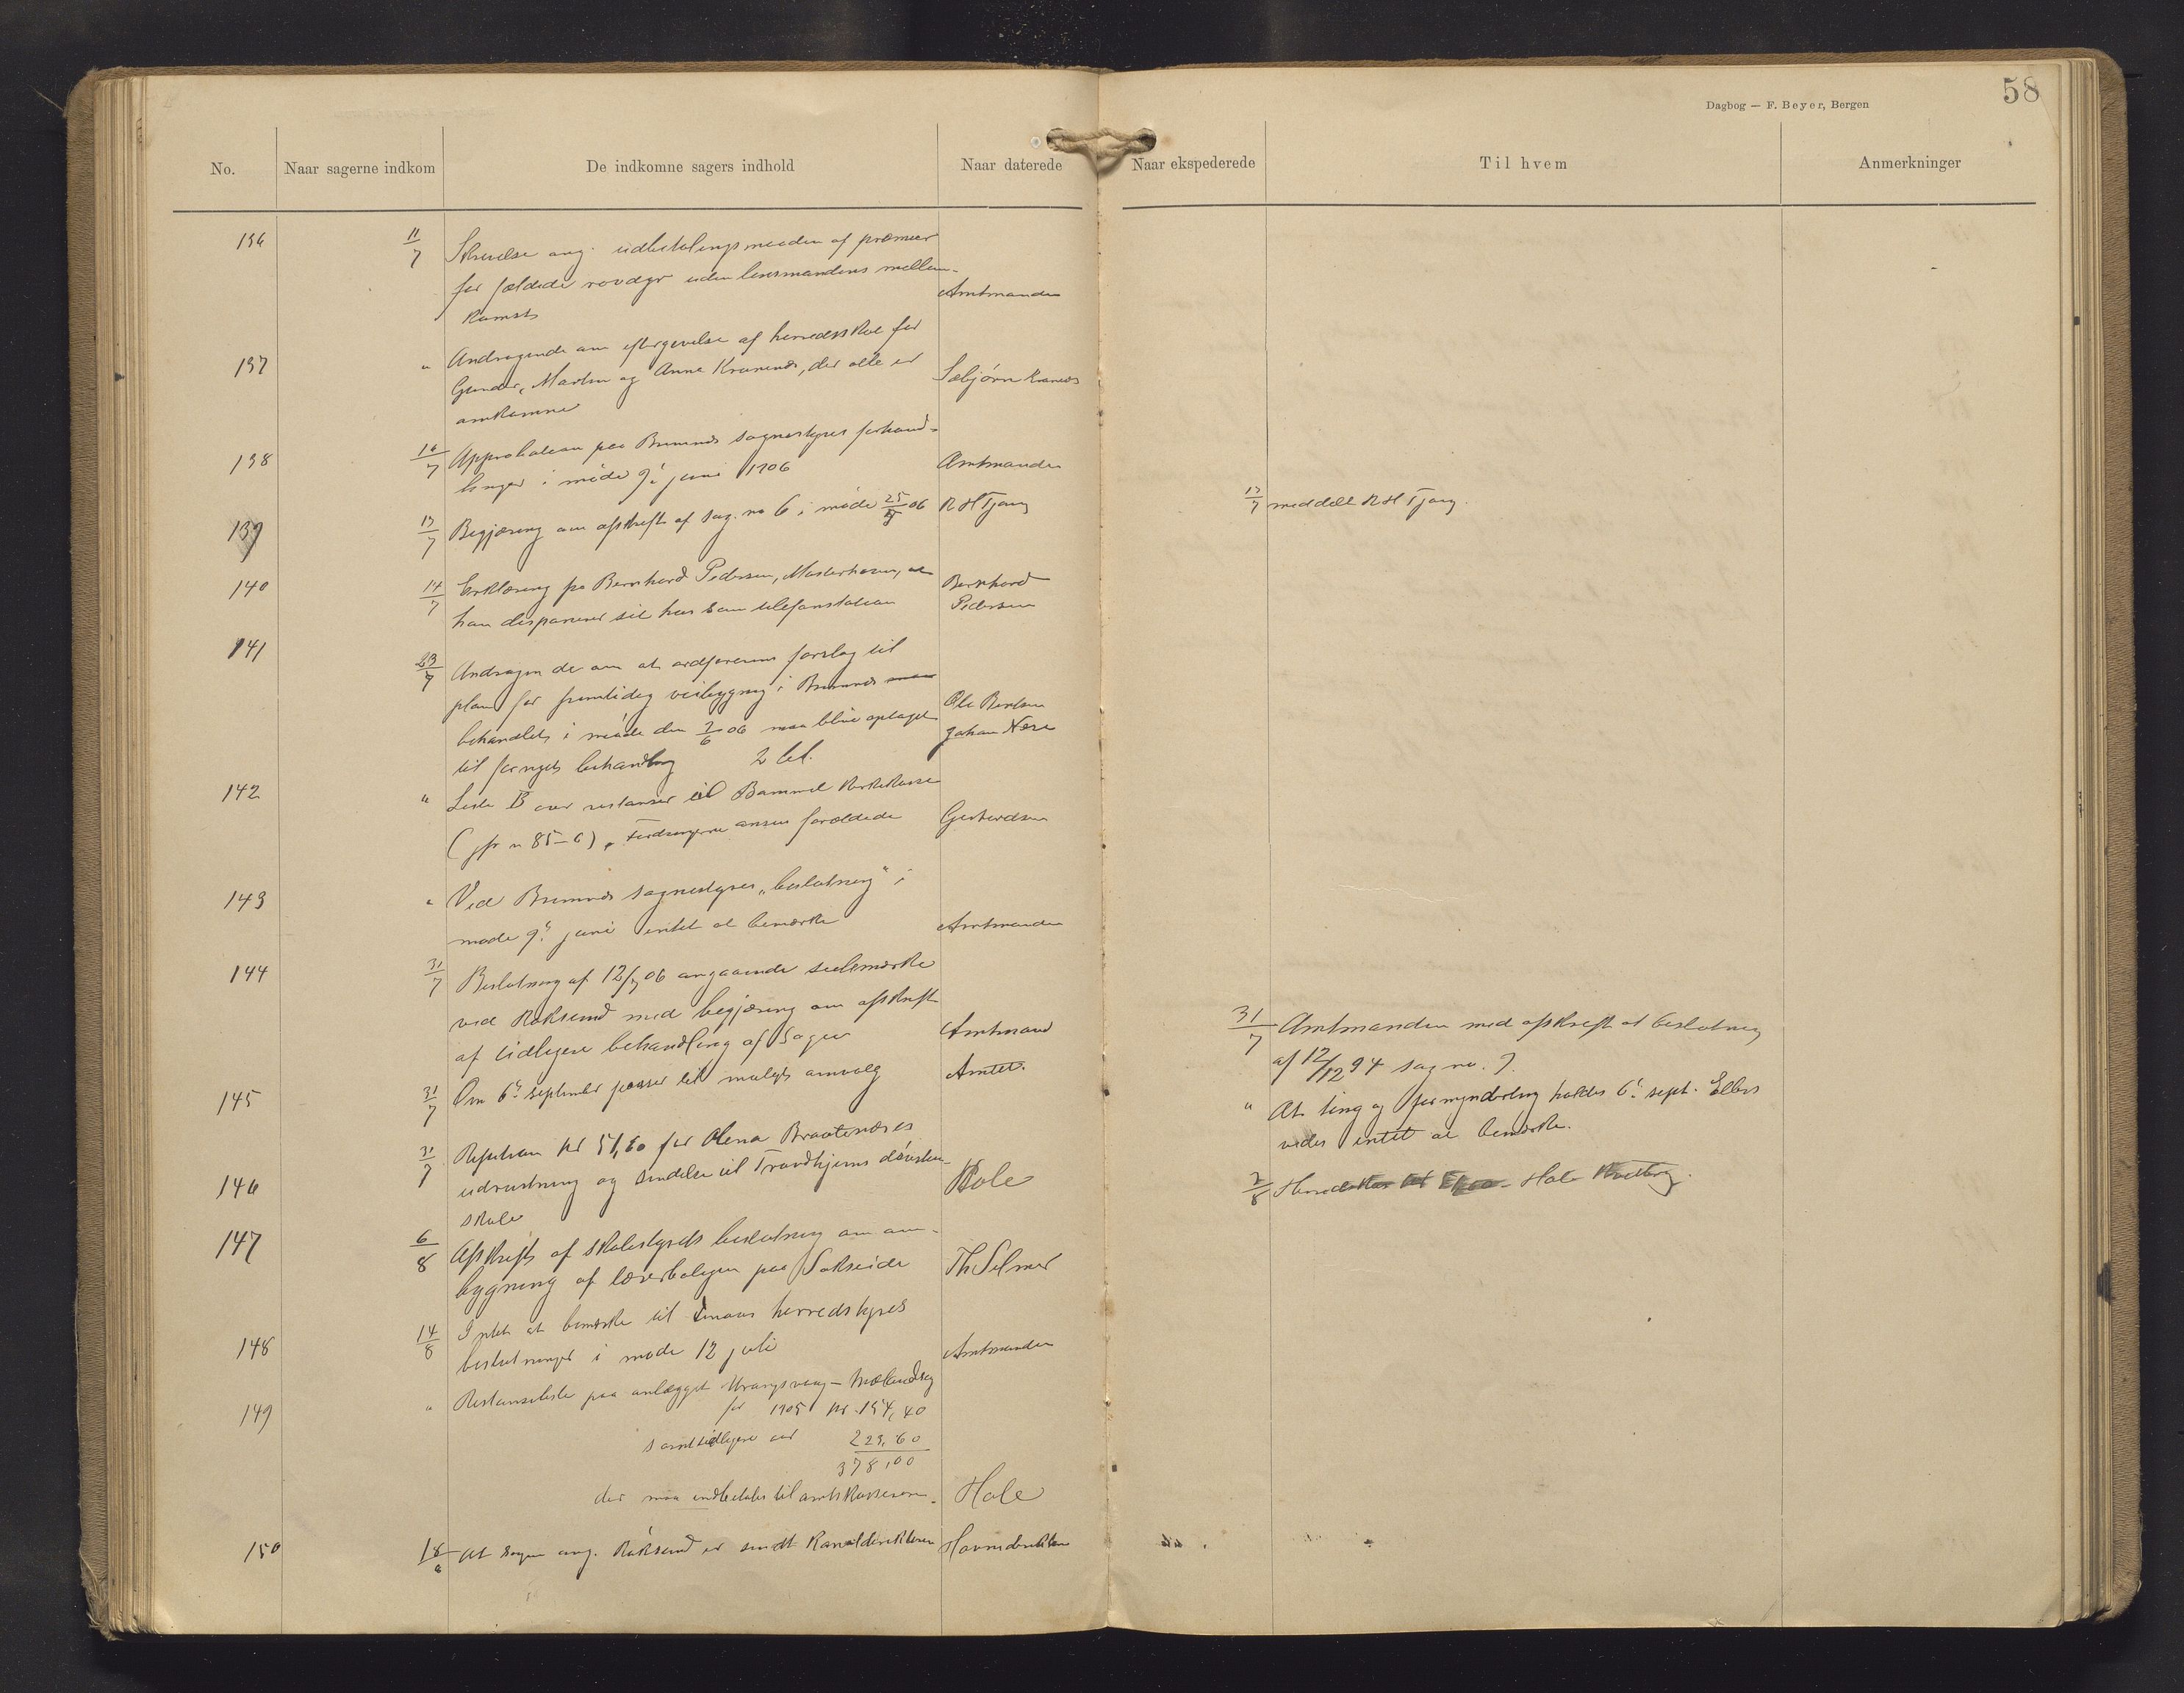 58
Dagbog — F. Beyer, Bergen
No. Naar sagerne indkom De indkomne sagers indhold Naar daterede Naar ekspederede Til hvem Anmerkninger
136 11/7 Skrivelse ang. udbetalingsmaaden af præmier
for fældede rovdyr uden lensmandens mellem-
komst Amtmanden
137 " Andragende om eftergivelse af herredsskat for
Gunder, Martin og Anna Kranenes, der alle er
omkomne Sæbjørn Kranenes
138 Approbation paa Bremnes sognestyres forhand-
linger i møde 9de juni 1906 Amtmanden
139 13/7 Begjæring om afskrift af sag no 6 i møde 25/ 06 R H Tjong 13/7 meddelt R H Tjong.
140 14/7 Erklæring fra Bernhard Pedersen, Mosterhavn, at
han disponerer sit hus som telefonstation Bernhard
Pedersen
141 23/7 Andragende om at ordførerens forslag til
plan for fremtidig veibygning i Bremnes
behandlet i møde den 7/6 06 maa blive optaget Ole Bentsen
til fornyet behandling 2 bil. Johan Nese
142 " Liste B over restanser til Bømmel kirkekasse
(jfr n 85-6). Fordringerne ansees forældede
143 " Ved Bremnes sognestyres "beslutning" i
møde 9de juni intet at bemærke Amtmanden
144 31/7 Beslutning af 12/7 06 angaaende seilemærke
ved Røksund med begjæring om afskrift
af tidligere behandling af sagen Amtmand
31/7 Amtmanden med afskrift af beslutning
af 12/12 94 sag no. 7.
145 31/7 Om 6te september passer til muligt omvalg Amtet.
" At ting og formynderting holdes 6te sept. Ellers
vides intet at bemærke.
146 31/7 Refusion kr 51,60 for Olena Braatenæs's
udrustning og sendelse til Trondhjems døvstum-
skole Hole
147 6/8 Afskrift af skolestyrets beslutning om om-
bygning af lærerboligen paa Sakseide Th Selmer
148 14/8 Intet at bemærke til Finaas herredstyres
beslutninger i møde 12 juli Amtmanden
149 " Restanseliste paa anlægget Urangsvaag - Mælandsøy
for 1905 kr. 154,40
samt tidligere aar 223,60
378,00
der maa indbetales til amtskassereren. Hole
150 At sagen ang. Røksund er sendt Kanaldirektøren Havnedirektøren